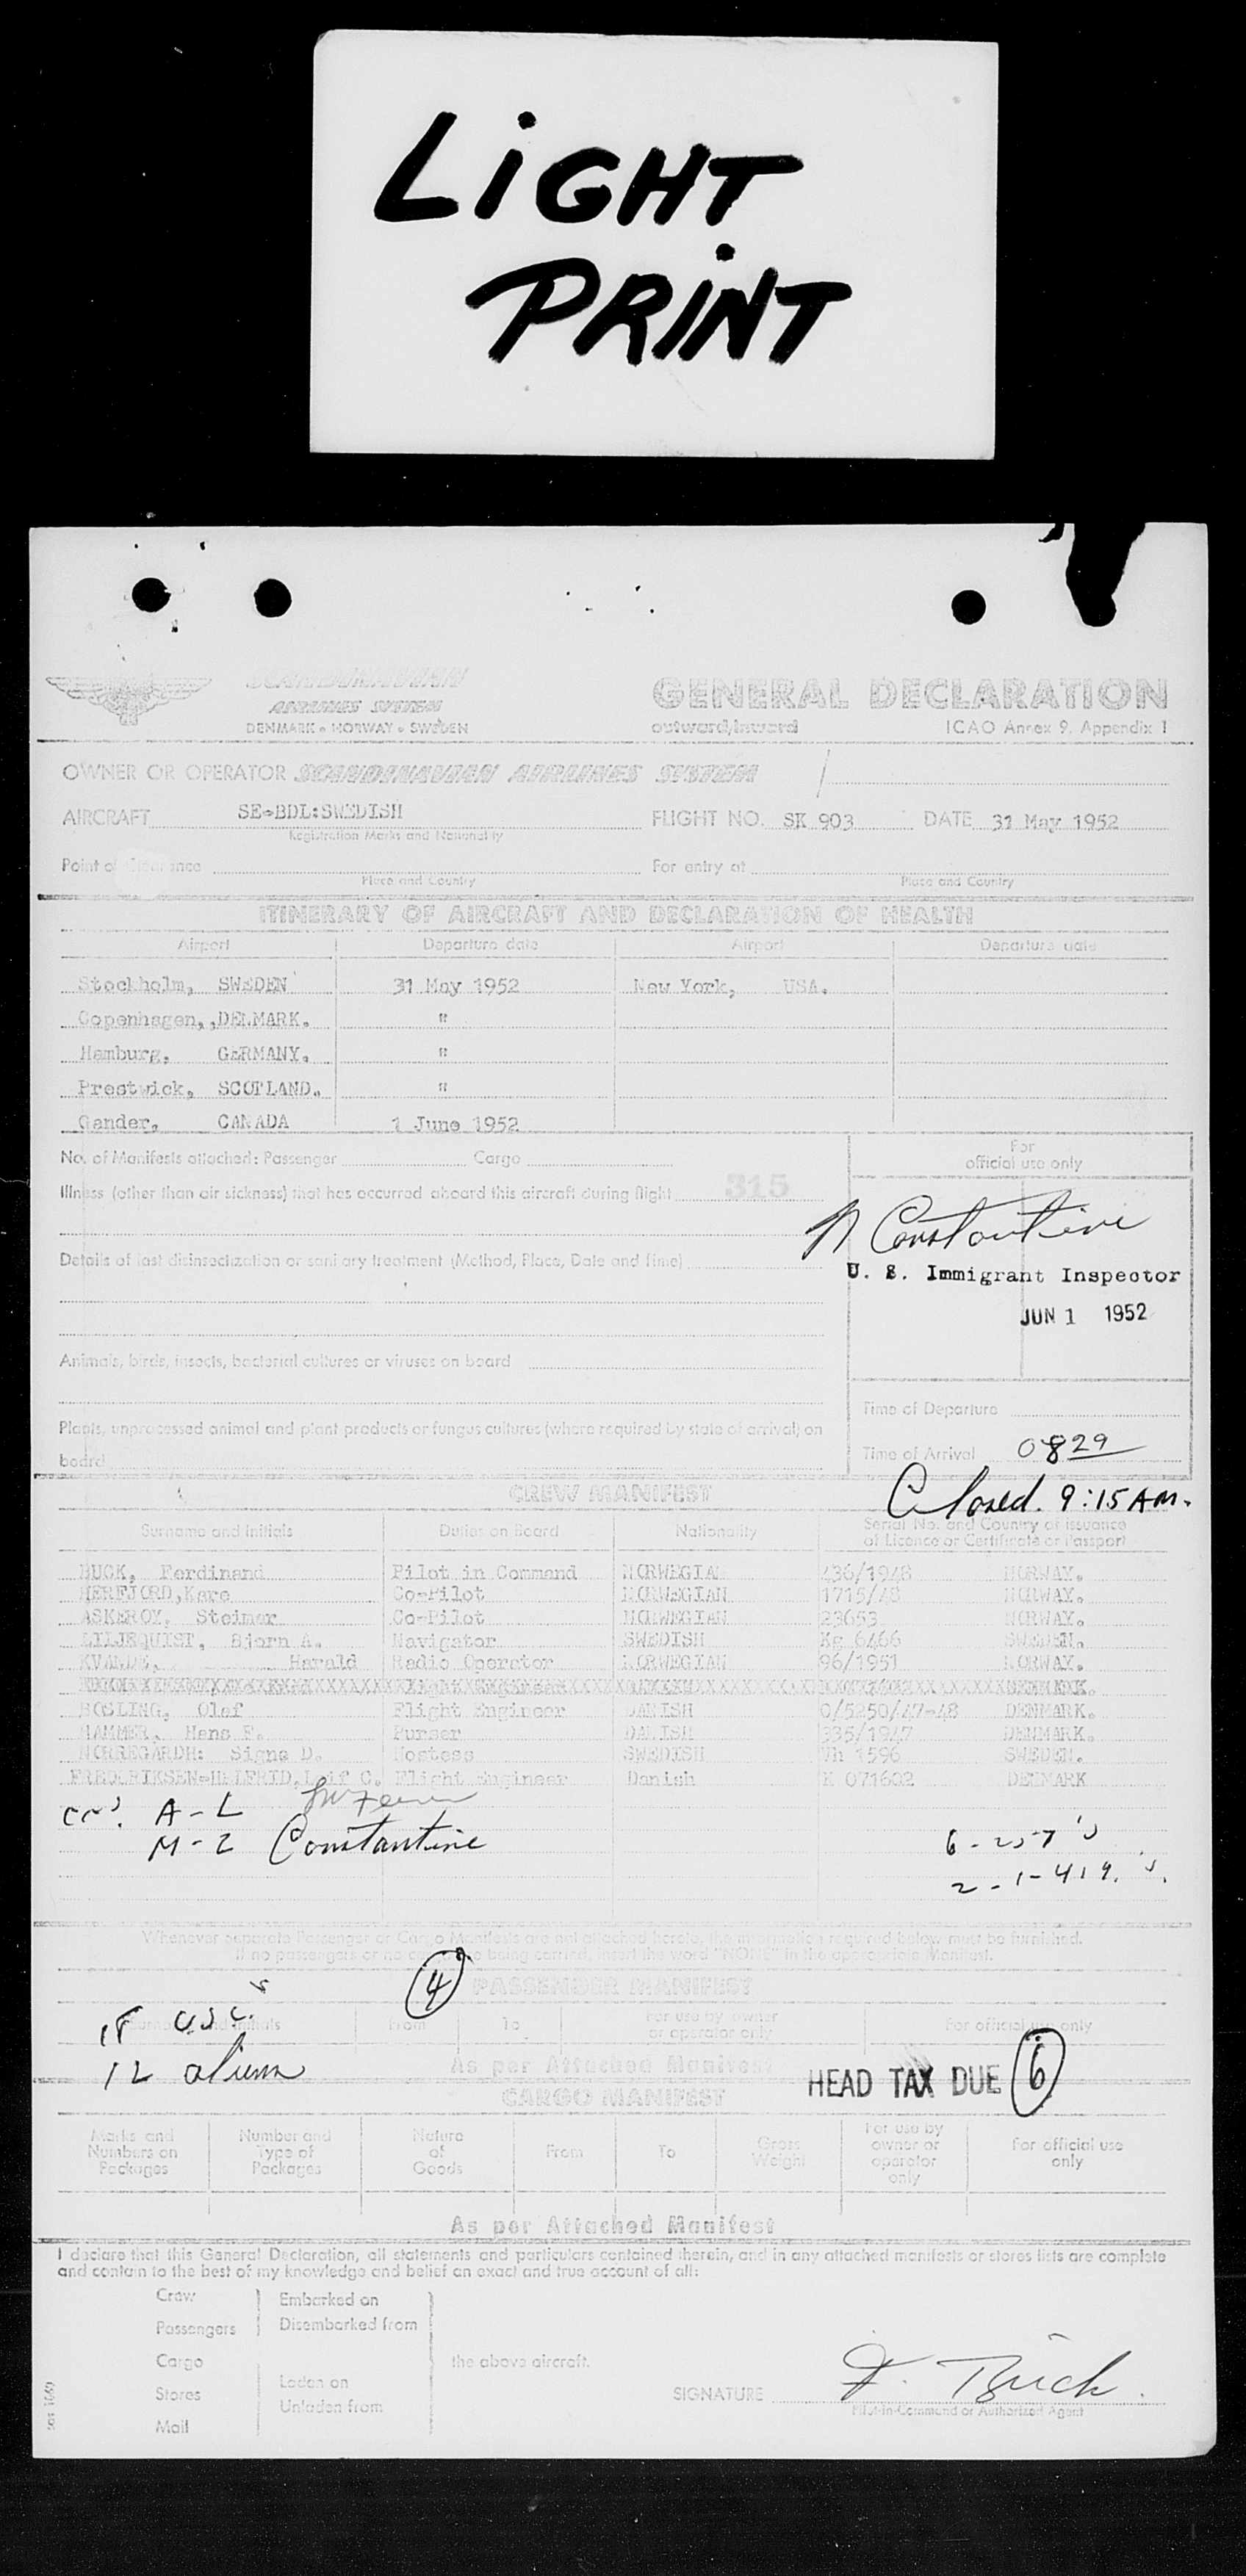 LiGHT
PRiNT
SCANDINAVIAN
AIRLINES SYSTEM
DENMARK • NORWAY • SWEDEN
GENERAL DECLARATION
outward/inward ICAO Annex 9, Appendix 1
OWNER OR OPERATOR SCANDINAVIAN AIRLINES SYSTEM
AIRCRAFT SE-BDL:SWEDISH FLIGHT NO. SK 903 DATE 31 May 1952
Registration Marks and Nationality
Point of Clearance For entry at
Place and Country Place and Country
ITINERARY OF AIRCRAFT AND DECLARATION OF HEALTH
Airport Departure date Airport Departure date
Stockholm, SWEDEN 31 May 1952 New York, USA.
Copenhagen,,DENMARK. "
Hamburg, GERMANY. "
Prestwick, SCOTLAND. "
Gander, CANADA 1 June 1952
No. of Manifests attached: Passenger Cargo
For
official use only
Illness (other than air sickness) that has occurred aboard this aircraft during flight 315
N Constantine
Details of last disinsectization or sanitary treatment (Method, Place, Date and Time)
U. S. Immigrant Inspector
JUN 1 1952
Animals, birds, insects, bacterial cultures or viruses on board
Time of Departure
Plants, unprocessed animal and plant products or fungus cultures (where required by state of arrival) on
board
Time of Arrival 0829
Closed. 9:15 AM.
CREW MANIFEST
Surname and initials Duties on Board Nationality Serial No. and Country of issuance
of Licence or Certificate or Passport
BUCK, Ferdinand Pilot in Command NORWEGIAN 436/1948 NORWAY.
HERFJORD,Kare Co-Pilot NORWEGIAN 1715/48 NORWAY.
ASKEROY, Steinar Co-Pilot NORWEGIAN 23653 NORWAY.
LILJEQUIST, Bjorn A. Navigator SWEDISH Kg 6466 SWEDEN.
KVALDE, Harald Radio Operator NORWEGIAN 96/1951 NORWAY.
ROSLING, Olaf Flight Engineer DANISH 0/5250/47-48 DENMARK.
HAMMER, Hans F. Purser DANISH 335/1947 DENMARK.
NORREGARDH: Signe D. Hostess SWEDISH Vh 1596 SWEDEN.
FREDERIKSEN-HELFRID,Leif C. Flight Engineer Danish K 071602 DENMARK
A - L
M - Z Constantine
6 - 257's
2 - 1-419's.
Whenever separate Passenger or Cargo Manifests are not attached hereto, the information required below must be furnished.
If no passengers or no cargo are being carried, insert the word "NONE" in the appropriate Manifest.
4
PASSENGER MANIFEST
18 USC's
Surname and initials From To For use by owner
or operator only For official use only
12 aliens
As per Attached Manifest
HEAD TAX DUE 6
CARGO MANIFEST
Marks and
Numbers on
Packages Number and
Type of
Packages Nature
of
Goods From To Gross
Weight For use by
owner or
operator
only For official use
only
As per Attached Manifest
I declare that this General Declaration, all statements and particulars contained therein, and in any attached manifests or stores lists are complete
and contain to the best of my knowledge and belief an exact and true account of all:
Crew Embarked on
Passengers Disembarked from
Cargo the above aircraft.
Stores Laden on
Unladen from
Mail
SIGNATURE F. Buck.
Pilot-in-Command or Authorized Agent